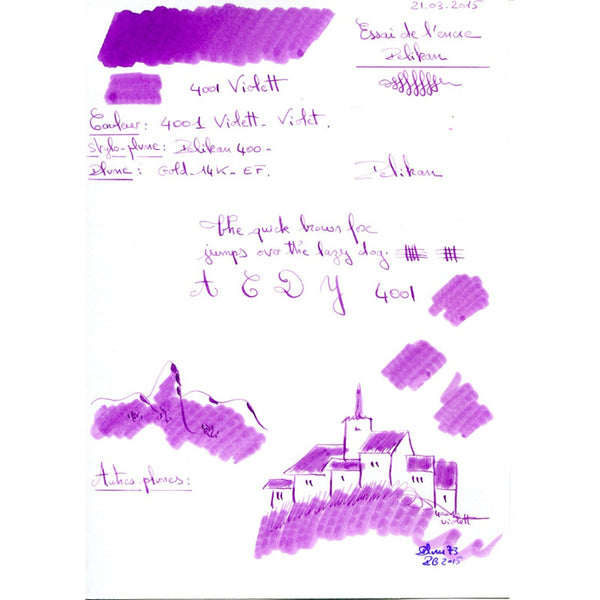 21.03.2015
Essai de l'encre
Pelikan
4001 Violett
Couleur: 4001 Violett - Violet.
Stylo-plume: Pelikan 400 -
Plume: Gold - 14K - EF.
Pelikan
The quick brown fox
jumps over the lazy dog.
A C D Y 4001
Autres plumes:
4001
Violett
2015